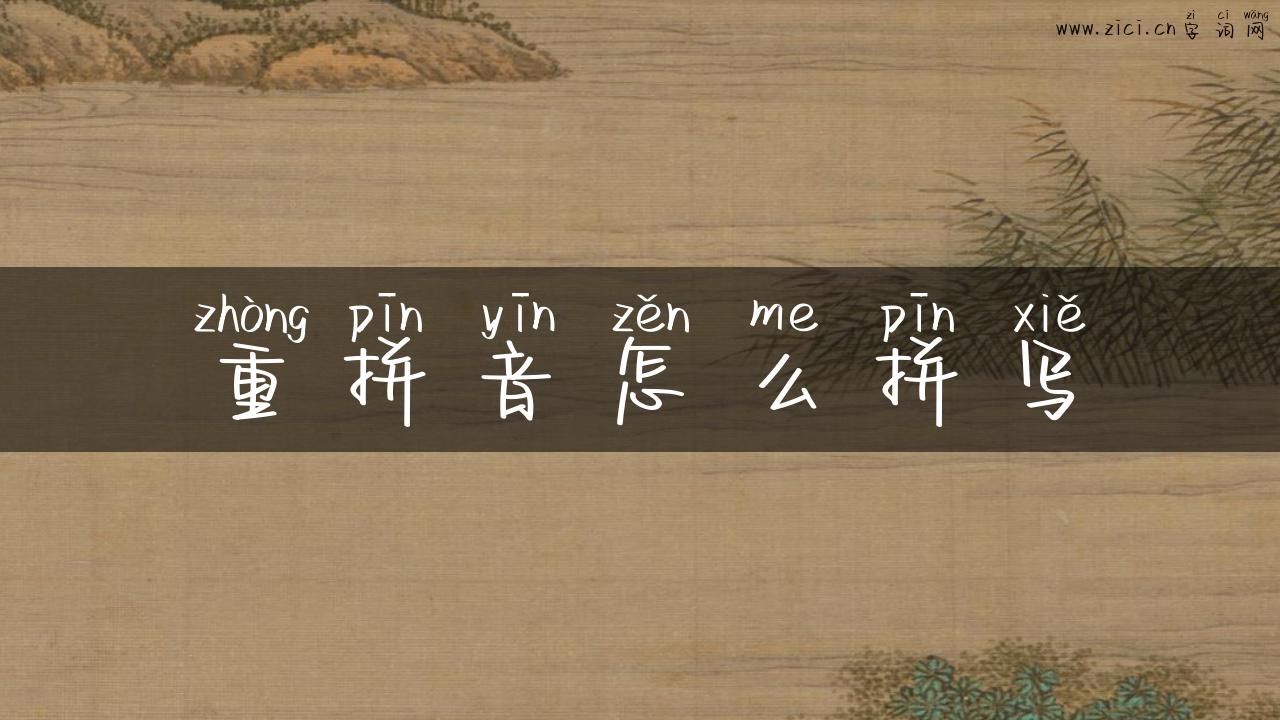 zì cí wǎng
www.zici.cn 字词网
zhòng pīn yīn zěn me pīn xiě
重拼音怎么拼写